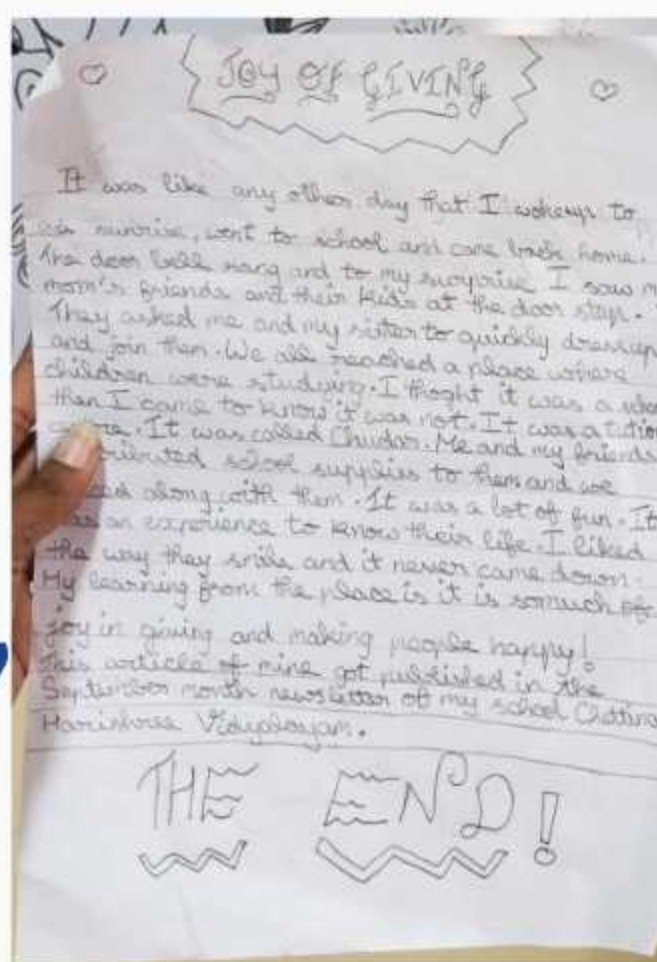 JOY OF GIVING
It was like any other day that I wokeup to
sunrise, went to school and came back home.
The door bell rang and to my surprise I saw
mom's friends and their kid's at the door step.
They asked me and my sister to quickly dressup
and join them. We all reached a place where
children were studying. I thoght it was a
then I came to know it was not. It was a
It was called Chudar. Me and my friends
school supplies to them and we
along with them. It was a lot of fun. It
an experience to know their life. I liked
the way they smile and it never came down.
My learning from the place is it is somuch of
joy in giving and making people happy!
This article of mine got published in the
September month newsletter of my school
Harishree Vidyalayam.
THE END!